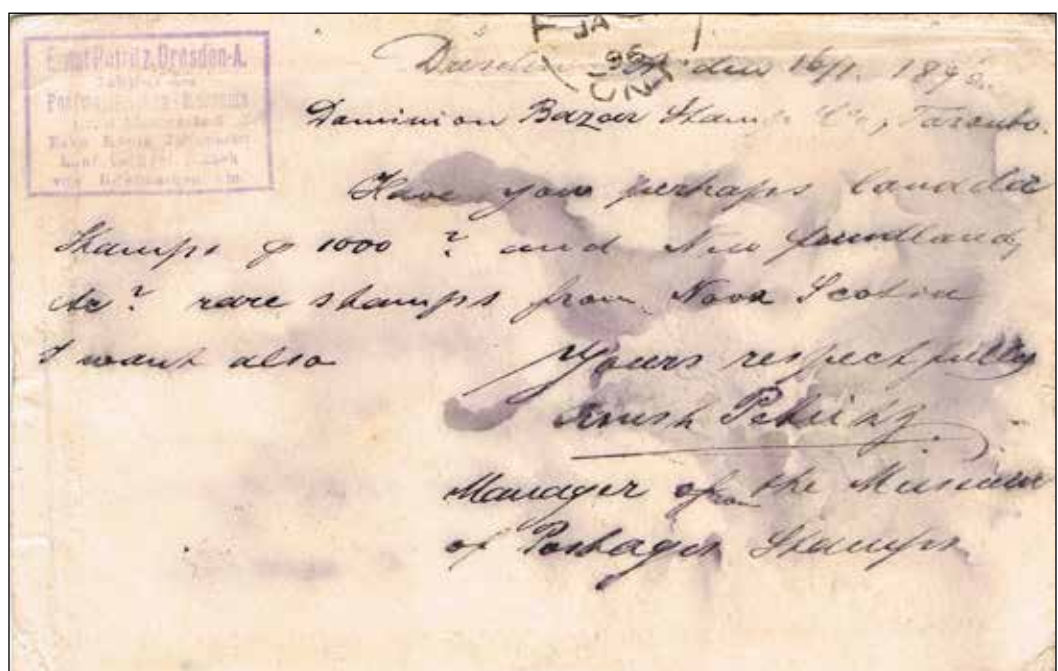 Ernst Petritz, Dresden-A.
JA
96
Dresden den 16/1. 1896.
Dominion Bazar Stamp Co, Toronto.
Have you perhaps Canada
Stamps p 1000 ? and New foundland,
&c ? rare stamps from Nova Scotia
I want also Yours respectfully
Ernst Petritz
Manager of the Museum
of Postages Stamps.